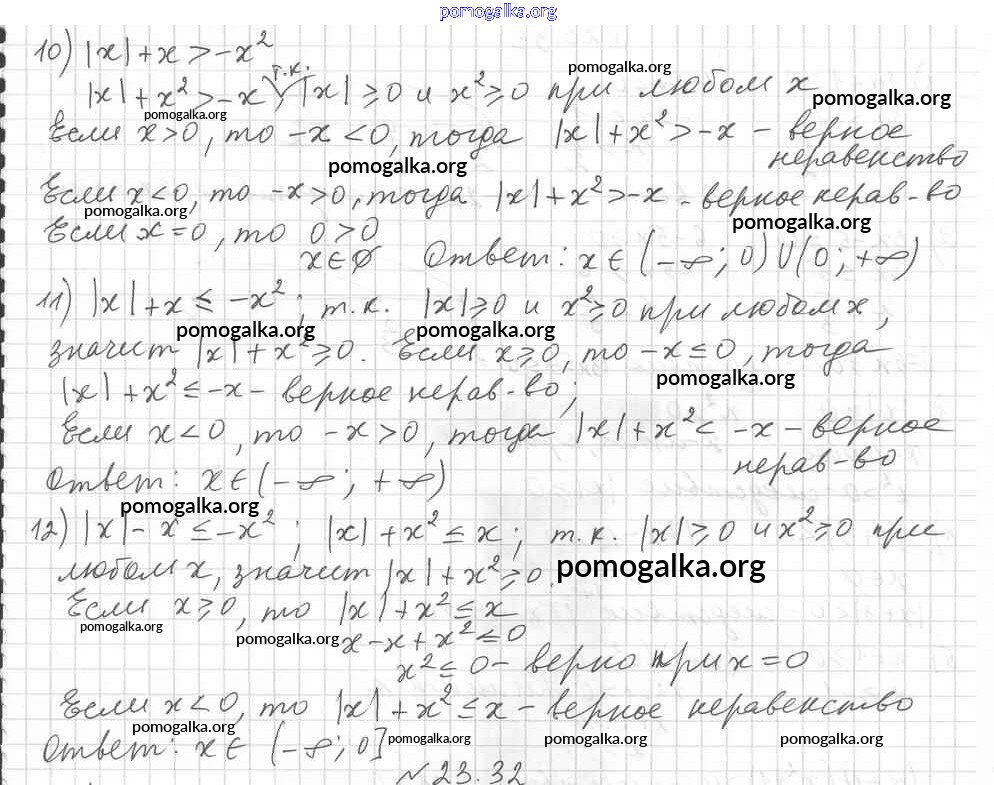 pomogalka.org
10) |x| + x > -x²
pomogalka.org
|x| + x² > -x, т.к. |x| ⩾ 0 и x² ⩾ 0 при любом x
pomogalka.org pomogalka.org
Если x > 0, то -x < 0, тогда |x| + x² > -x - верное
неравенство
pomogalka.org
Если x < 0, то -x > 0, тогда |x| + x² > -x - верное нерав-во
pomogalka.org pomogalka.org
Если x = 0, то 0 > 0
x ∈ ∅ Ответ: x ∈ (-∞; 0) ∪ (0; +∞)
11) |x| + x ≤ -x²; т.к. |x| ⩾ 0 и x² ⩾ 0 при любом x,
pomogalka.org pomogalka.org
значит |x| + x² ⩾ 0. Если x ⩾ 0, то -x ≤ 0, тогда
pomogalka.org
|x| + x² ≤ -x - верное нерав-во;
Если x < 0, то -x > 0, тогда |x| + x² < -x - верное
нерав-во
Ответ: x ∈ (-∞; +∞)
pomogalka.org
12) |x| - x ≤ -x²; |x| + x² ≤ x; т.к. |x| ⩾ 0 и x² ⩾ 0 при
любом x, значит |x| + x² ⩾ 0.
pomogalka.org
Если x ⩾ 0, то |x| + x² ≤ x
pomogalka.org pomogalka.org
x - x + x² ≤ 0
x² ≤ 0 - верно при x = 0
Если x < 0, то |x| + x² ≤ x - верное неравенство
pomogalka.org pomogalka.org pomogalka.org pomogalka.org
Ответ: x ∈ (-∞; 0]
№ 23.32